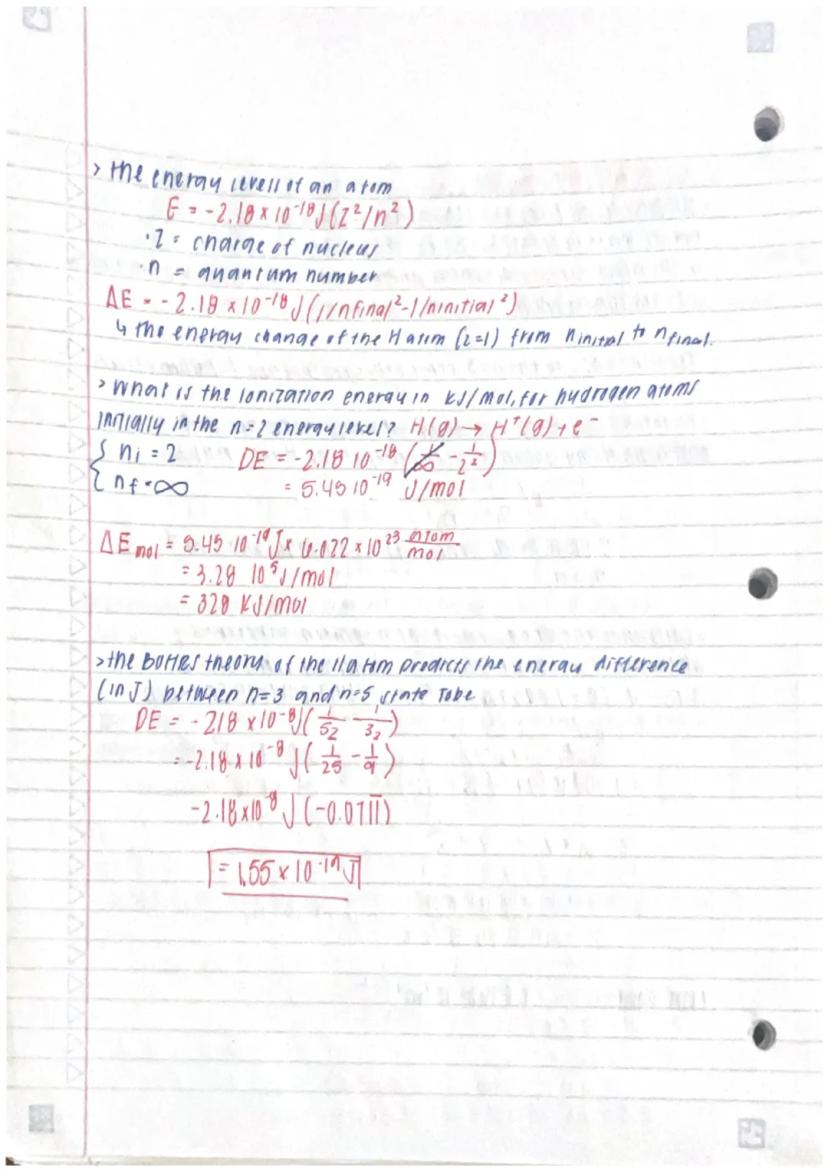 > the energy levels of an atom
E = -2.18 × 10⁻¹⁸ J (Z²/n²)
· Z = charge of nucleus
· n = quantum number
ΔE = -2.18 × 10⁻¹⁸ J (1/nfinal² - 1/ninitial²)
↳ the energy change of the H atom (z=1) from ninitial to nfinal.
> What is the ionization energy in kJ/mol, for hydrogen atoms
initially in the n=2 energy level? H(g) → H⁺(g) + e⁻
{ ni = 2 DE = -2.18 10⁻¹⁸ (1/∞ - 1/2²)
{ nf = ∞ = 5.45 10⁻¹⁹ J/mol
ΔE mol = 5.45 10⁻¹⁹ J × 6.022 × 10²³ atom/mol
= 3.28 10⁵ J/mol
= 328 KJ/mol
> the Bohrs theory of the H atom predicts the energy difference
(in J) between n=3 and n=5 state to be
DE = -218 × 10⁻⁸ J (1/52 - 1/32)
= -2.18 × 10⁻⁸ J (1/25 - 1/9)
-2.18 × 10⁻⁸ J (-0.0711)
= 1.55 × 10⁻¹⁹ J